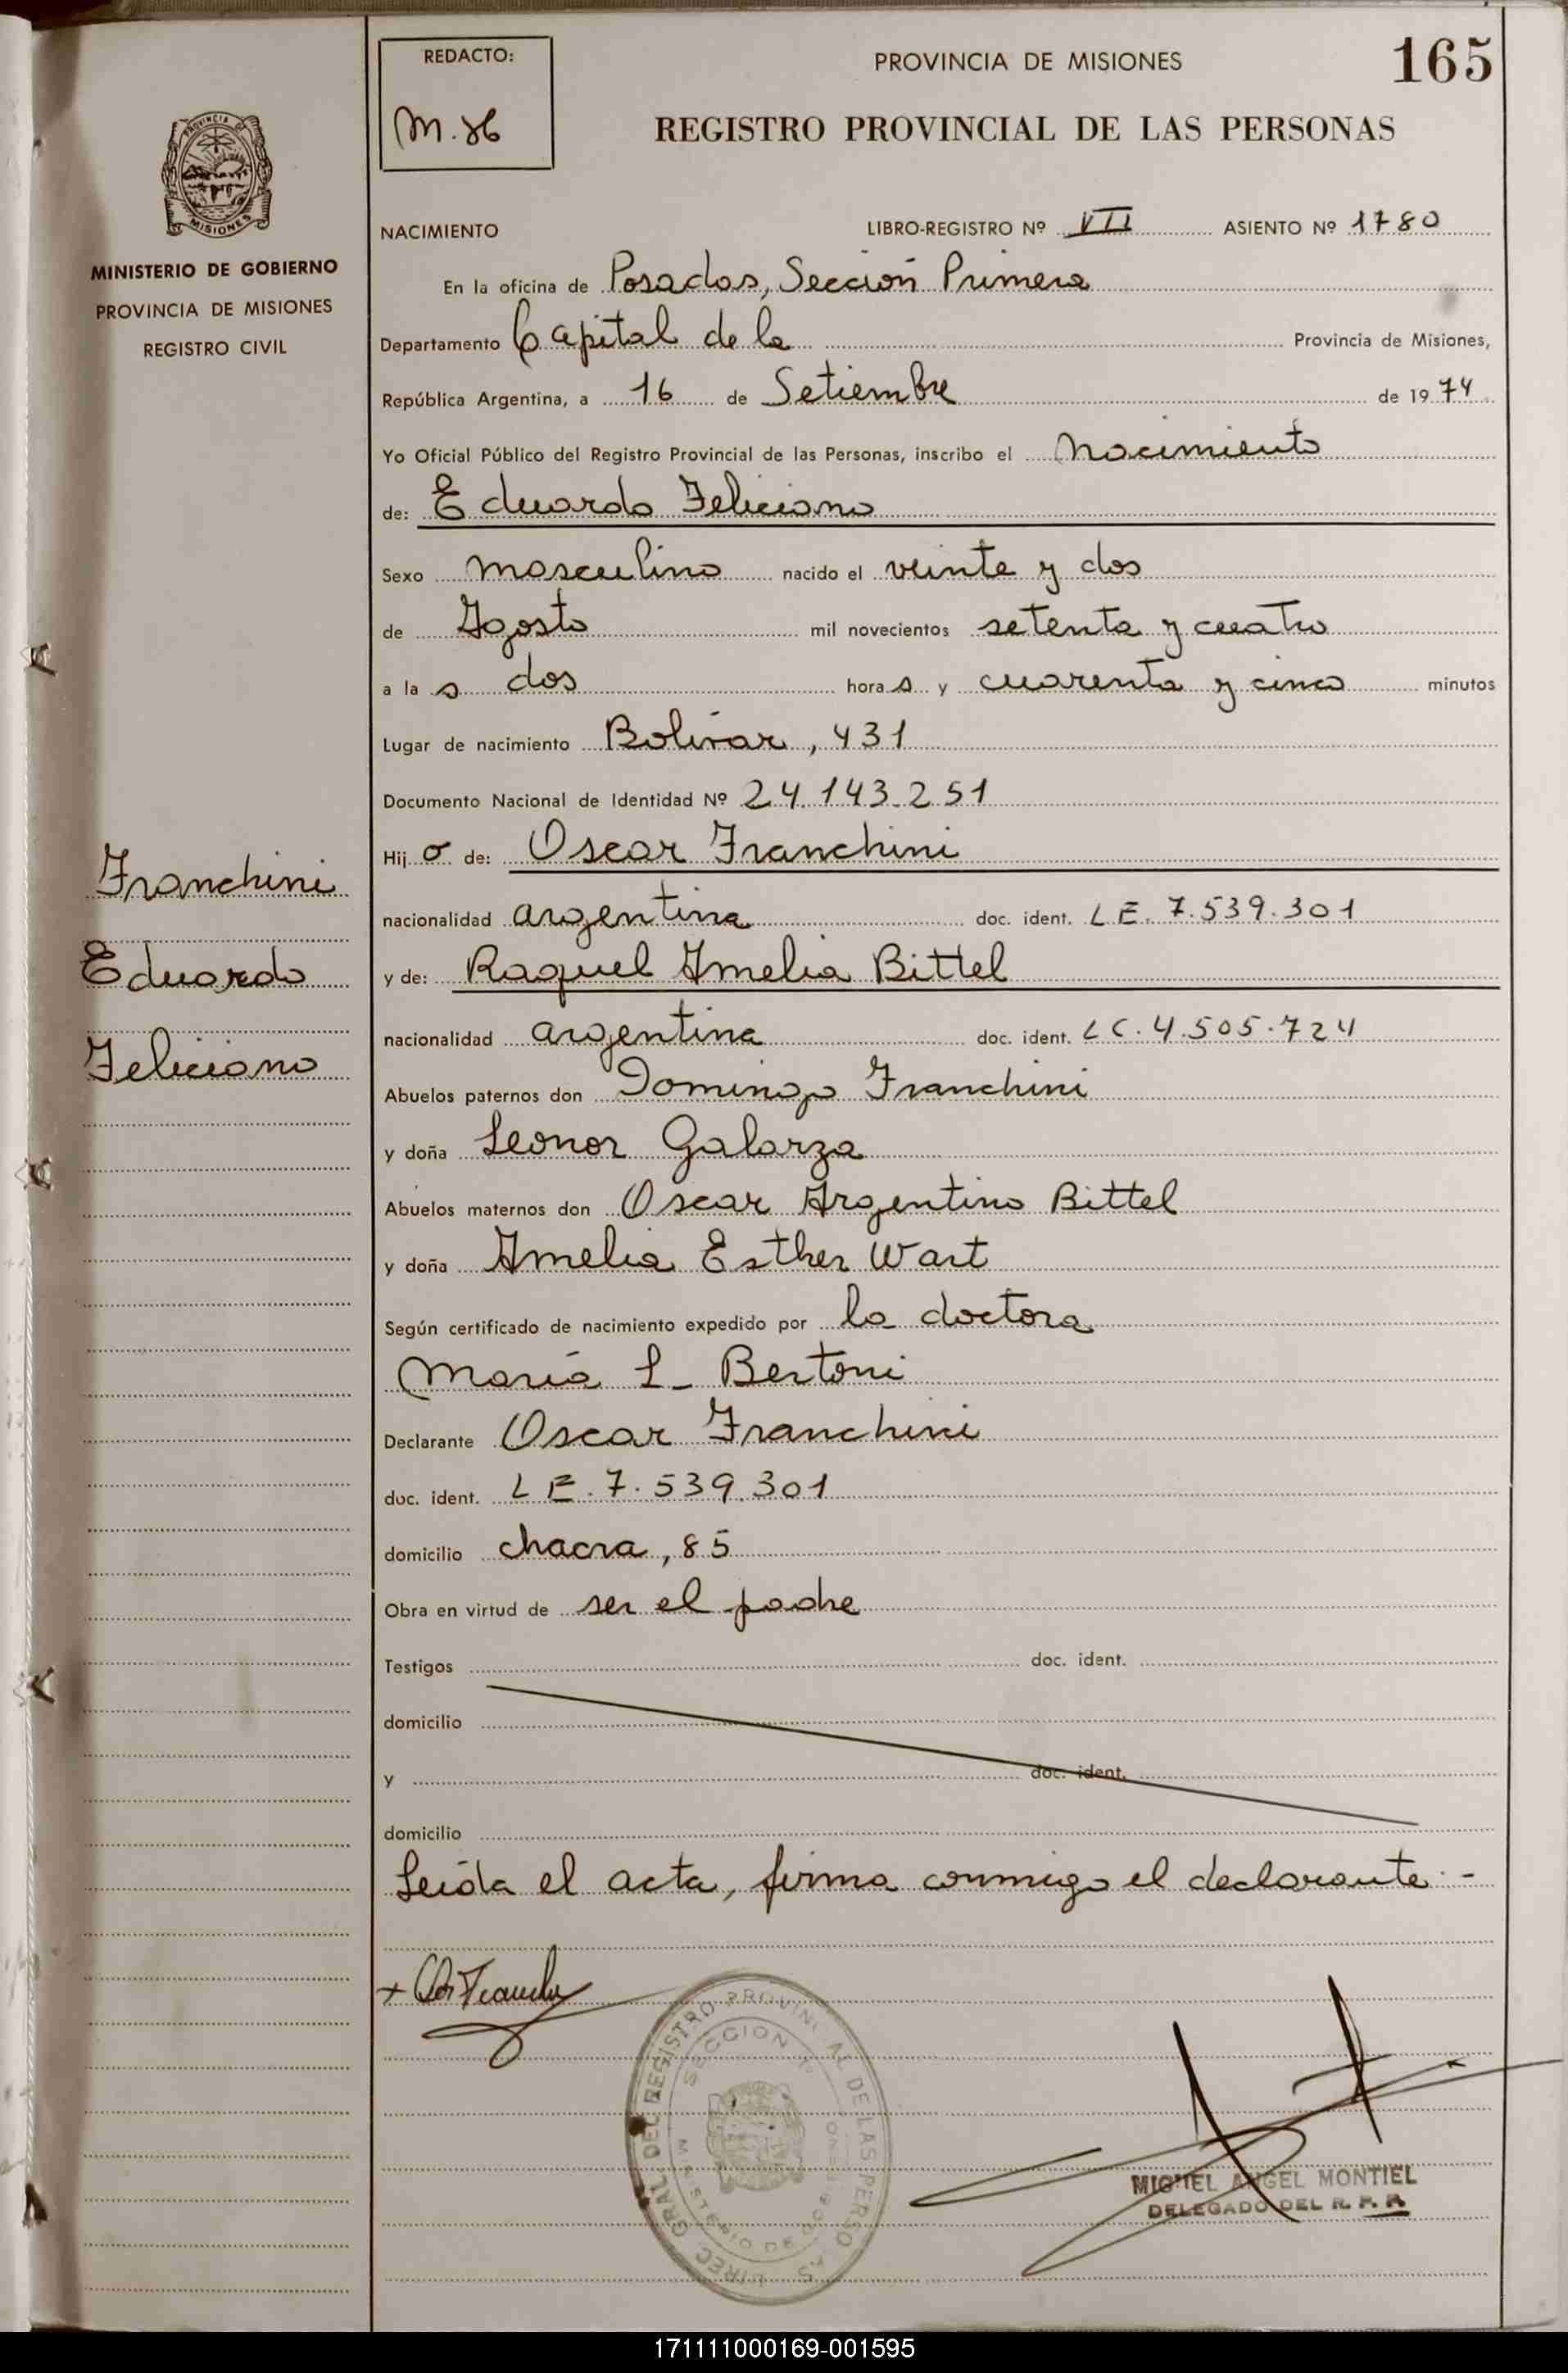 REDACTO:
PROVINCIA DE MISIONES
165
REGISTRO PROVINCIAL DE LAS PERSONAS
PROVINCIA DE
MISIONES
MINISTERIO DE GOBIERNO
PROVINCIA DE MISIONES
REGISTRO CIVIL
NACIMIENTO LIBRO-REGISTRO Nº VII ASIENTO Nº 1780
En la oficina de Posadas, Sección Primera
Departamento Capital de la Provincia de Misiones,
República Argentina, a 16 de Setiembre de 1974
Yo Oficial Público del Registro Provincial de las Personas, inscribo el Nacimiento
de: Eduardo Feliciano
Sexo masculino nacido el veinte y dos
de Agosto mil novecientos setenta y cuatro
a la s dos hora s y cuarenta y cinco minutos
Lugar de nacimiento Bolívar, 431
Documento Nacional de Identidad Nº 24.143.251
Hij o de: Oscar Franchini
nacionalidad argentina doc. ident. LE. 7.539.301
y de: Raquel Amelia Bittel
nacionalidad argentina doc. ident. LC. 4.505.724
Abuelos paternos don Domingo Franchini
y doña Leonor Galarza
Abuelos maternos don Oscar Argentino Bittel
y doña Amelia Esther Wart
Según certificado de nacimiento expedido por la doctora
María L. Bertoni
Declarante Oscar Franchini
doc. ident. LE. 7.539.301
domicilio chacra, 85
Obra en virtud de ser el padre
Testigos doc. ident.
domicilio
y doc. ident.
domicilio
Leída el acta, firma conmigo el declarante.-
Franchini
Eduardo
Feliciano
DIREC. GRAL DEL REGISTRO PROVINCIAL DE LAS PERSONAS
SECCION 1º
MINISTERIO DE GOBIERNO
MIGUEL ANGEL MONTIEL
DELEGADO DEL R. P. P.
171111000169-001595